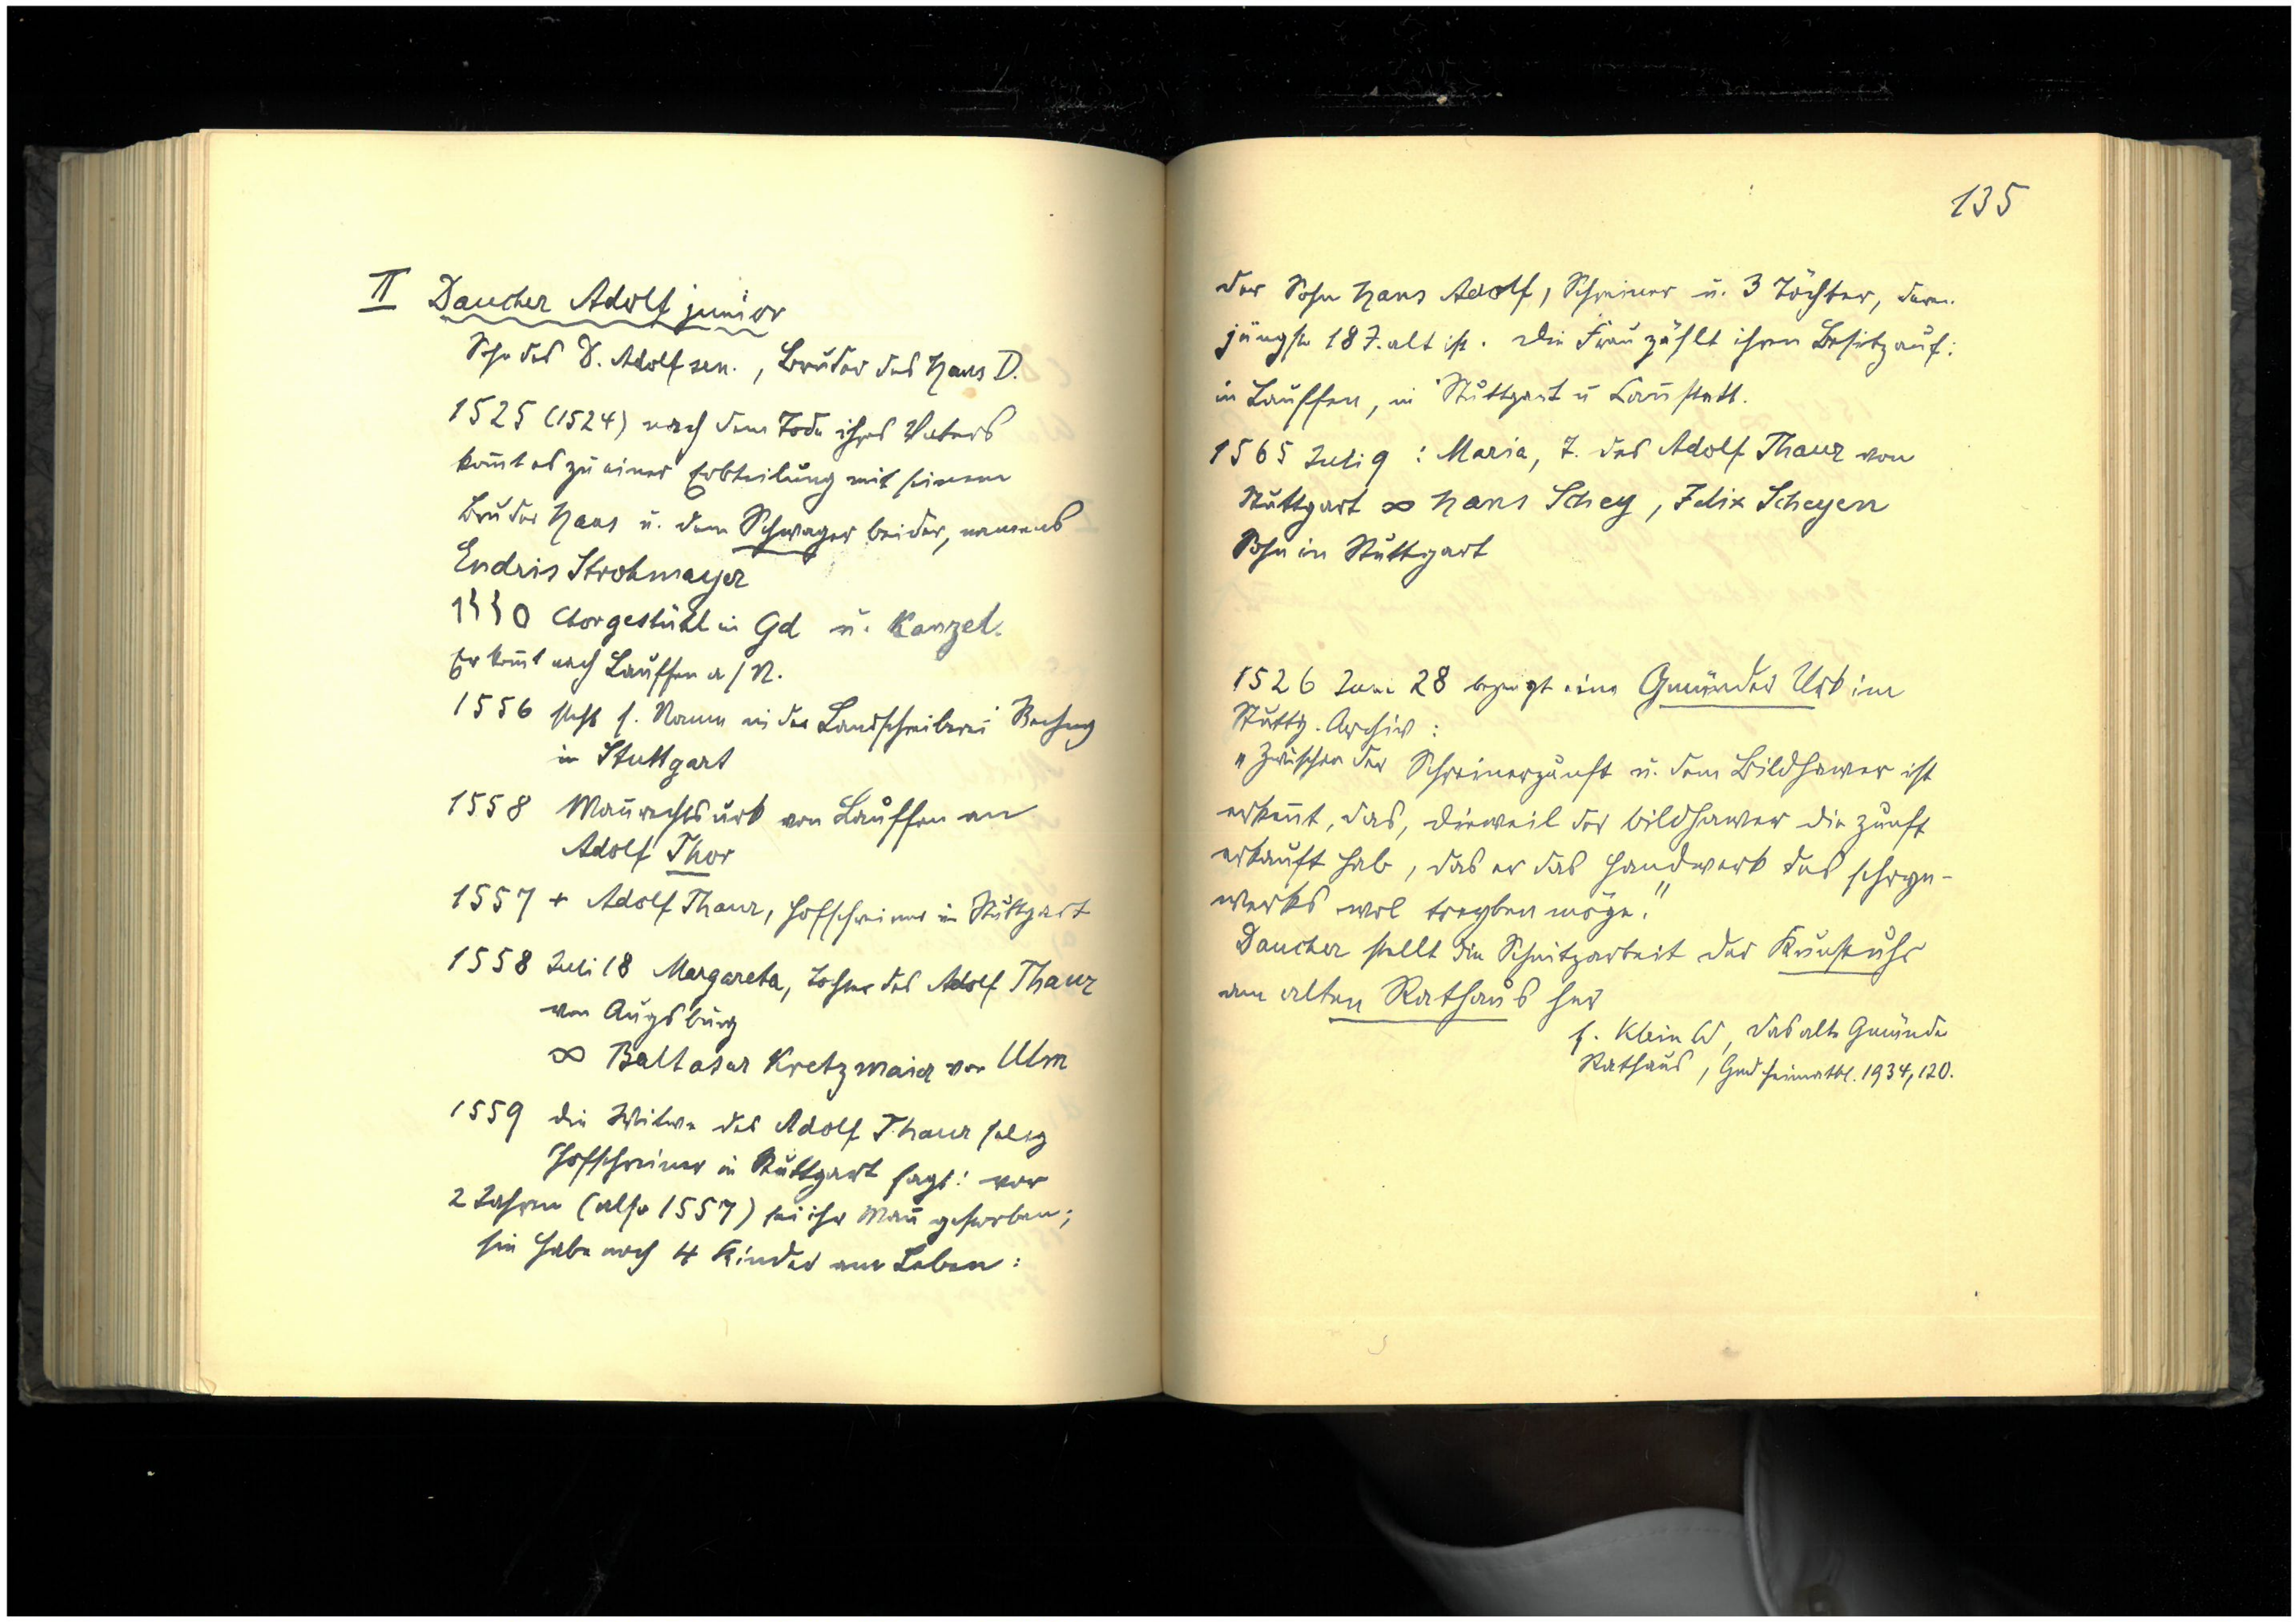 II Daucher Adolf junior
Sohn des D. Adolf sen., Bruder des Hans D.
1525 (1524) nach dem Tode ihres Vaters
kom̄t es zu einer Erbteilung mit seinem
Bruder Hans u. dem Schwager beider, namens
Endris Strohmayer
1550 Chorgestühl in Gd u. Kanzel.
Er kom̄t nach Lauffen a/N.
1556 steht s. Name in der Landschreiberei Rechng
in Stuttgart
1558 Man̄rechtsurk von Lauffen an
Adolf Thor
1557 + Adolf Thaur, Hofschreiner in Stuttgart
1558 Juli 18 Margareta, Tochter des Adolf Thaur
von Augsburg
∞ Baltasar Kretzmaier von Ulm
1559 die Witwe des Adolf Thaur selig
Hofschreiner in Stuttgart sagt: vor
2 Jahren (also 1557) sei ihr Man̄ gestorben;
sie habe noch 4 Kinder am Leben:
135
der Sohn Hans Adolf, Schreiner u. 3 Töchter, deren
jüngste 18 J. alt ist. Die Frau zählt ihren Besitz auf:
in Lauffen, in Stuttgart u Can̄statt.
1565 Juli 9 : Maria, T. des Adolf Thaur von
Stuttgart ∞ Hans Schey, Felix Scheyen
Sohn in Stuttgart
1526 Juni 28 bezeugt eine Gmünder Urk im
Stuttg. Archiv :
"Zwischen der Schreinerzunft u. dem Bildhawer ist
erken̄t, das, dieweil der bildhawer die zunft
erkauft hab, das er das Handwerk des schryn-
werks wol treyben möge."
Daucher stellt die Schnitzarbeit der Kunstuhr
am alten Rathaus her
s. Klein W, Das alte Gmünder
Rathaus, Gmd Heimatbl. 1934, 120.